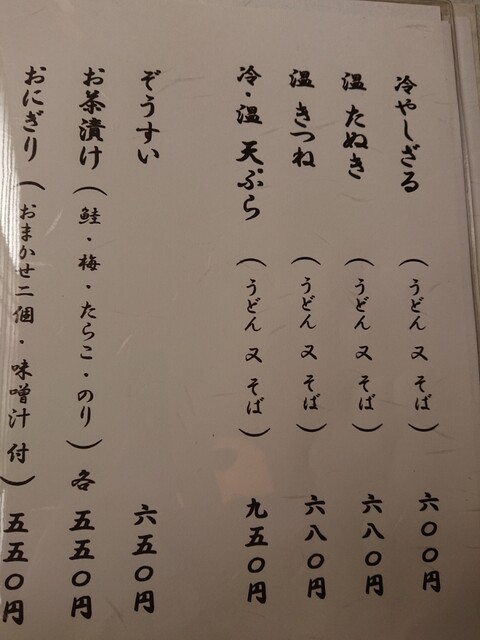 冷やしざる（うどん又そば）六〇〇円
温 たぬき（うどん又そば）六八〇円
温 きつね（うどん又そば）六八〇円
冷・温 天ぷら（うどん又そば）九五〇円
ぞうすい 六五〇円
お茶漬け（鮭・梅・たらこ・のり）各 五五〇円
おにぎり（おまかせ二個・味噌汁付）五五〇円